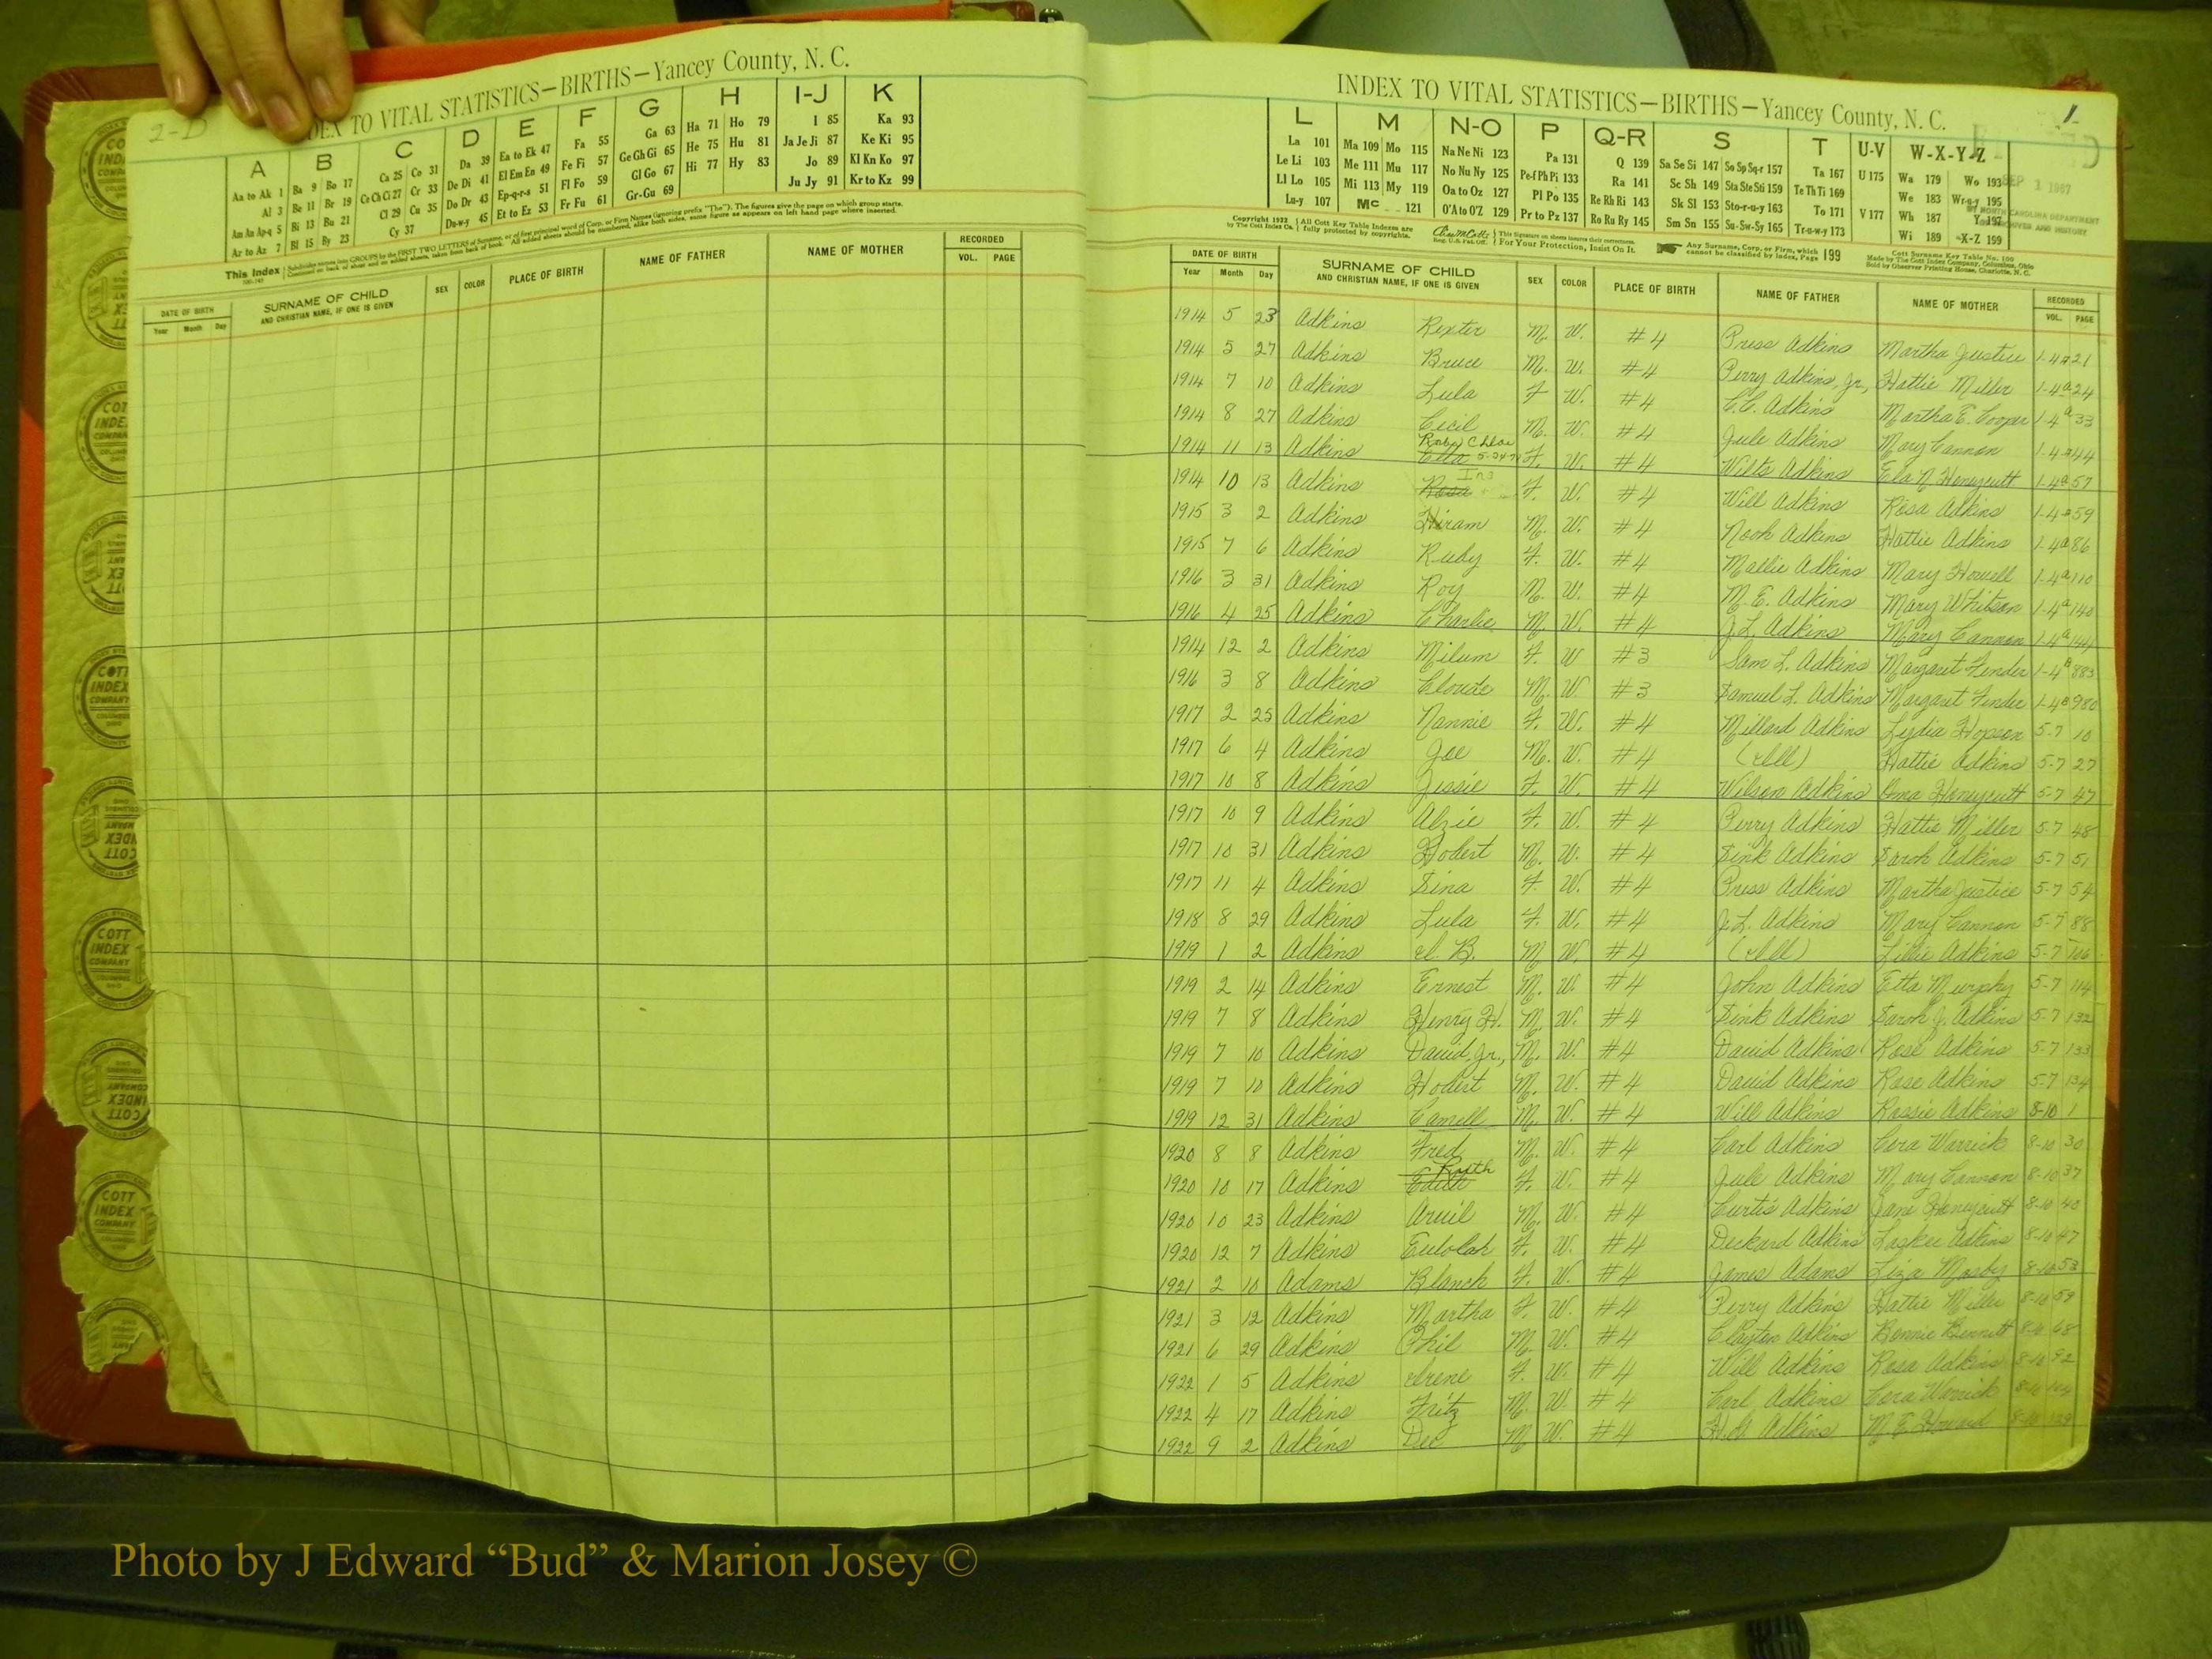 2-D
INDEX TO VITAL STATISTICS—BIRTHS—Yancey County, N. C.
A B C D E F G H I-J K
Aa to Ak 1 Ba 9 Bo 17 Ca 25 Co 31 Da 39 Ea to Ek 47 Fa 55 Ga 63 Ha 71 Ho 79 I 85 Ka 93
Al 3 Be 11 Br 19 Ce Ch Ci 27 Cr 33 De Di 41 El Em En 49 Fe Fi 57 Ge Gh Gi 65 He 75 Hu 81 Ja Je Ji 87 Ke Ki 95
Am An Ap-q 5 Bi 13 Bu 21 Cl 29 Cu 35 Do Dr 43 Ep-q-r-s 51 Fl Fo 59 Gl Go 67 Hi 77 Hy 83 Jo 89 Kl Kn Ko 97
Ar to Az 7 Bl 15 By 23 Cy 37 Du-w-y 45 Et to Ez 53 Fr Fu 61 Gr-Gu 69 Ju Jy 91 Kr to Kz 99
This Index
DATE OF BIRTH SURNAME OF CHILD SEX COLOR PLACE OF BIRTH NAME OF FATHER NAME OF MOTHER RECORDED
Year Month Day AND CHRISTIAN NAME, IF ONE IS GIVEN VOL. PAGE
INDEX TO VITAL STATISTICS—BIRTHS—Yancey County, N. C.
1
L M N-O P Q-R S T U-V W-X-Y-Z
La 101 Ma 109 Mo 115 Na Ne Ni 123 Pa 131 Q 139 Sa Se Si 147 So Sp Sq-r 157 Ta 167 U 175 Wa 179 Wo 193
Le Li 103 Me 111 Mu 117 No Nu Ny 125 Pe-f Ph Pi 133 Ra 141 Sc Sh 149 Sta Ste Sti 159 Te Th Ti 169 We 183 Wr-u-y 195
Ll Lo 105 Mi 113 My 119 Oa to Oz 127 Pl Po 135 Re Rh Ri 143 Sk Sl 153 Sto-r-u-y 163 To 171 V 177 Wh 187 Y 197
Lu-y 107 Mc 121 O'A to O'Z 129 Pr to Pz 137 Ro Ru Ry 145 Sm Sn 155 Su-Sw-Sy 165 Tr-u-w-y 173 Wi 189 X-Z 199
SEP 1 1967
Copyright 1932 by The Cott Index Co. All Cott Key Table Indexes are fully protected by copyrights. For Your Protection, Insist On It. Any Surname, Corp. or Firm, which cannot be classified by Index, Page 199
DATE OF BIRTH SURNAME OF CHILD SEX COLOR PLACE OF BIRTH NAME OF FATHER NAME OF MOTHER RECORDED
Year Month Day AND CHRISTIAN NAME, IF ONE IS GIVEN VOL. PAGE
1914 5 23 Adkins Rexter M. W. #4 Press Adkins Martha Justice 1-4a 21
1914 5 27 Adkins Bruce M. W. #4 Perry Adkins, Jr., Hattie Miller 1-4a 24
1914 7 10 Adkins Lula F W. #4 C.C. Adkins Martha E. Cooper 1-4a 33
1914 8 27 Adkins Cicil M. W. #4 Jule Adkins Mary Cannon 1-4a 44
1914 11 13 Adkins Chloe Etta F. W. #4 Wilts Adkins Honeycutt 1-4a 57
1914 10 13 Adkins Rosa F. W. #4 Will Adkins Rosa Adkins 1-4a 59
1915 3 2 Adkins Hiram M. W. #4 Noah Adkins Hattie Adkins 1-4a 86
1915 7 6 Adkins Ruby F. W. #4 Mallie Adkins Mary Howell 1-4a 110
1916 3 31 Adkins Roy M. W. #4 M.E. Adkins Mary Whitson 1-4a 140
1916 4 25 Adkins Charlie M. W. #4 J.L. Adkins Mary Cannon 1-4a 144
1914 12 2 Adkins Milum F. W #3 Sam L. Adkins Margaret Fender 1-4B 883
1916 3 8 Adkins M. W #3 Samuel L. Adkins Margaret Fender 1-4B 980
1917 2 25 Adkins Nannie F. W. #4 Millard Adkins Lydia Hopson 5-7 10
1917 6 4 Adkins Joe M. W. #4 (Ill) Hattie Adkins 5-7 27
1917 10 8 Adkins Jessie F. W. #4 Wilson Adkins Honeycutt 5-7 47
1917 10 9 Adkins Alzie F. W. #4 Perry Adkins Hattie Miller 5-7 48
1917 10 31 Adkins Hobert M. W. #4 Sink Adkins Sarah Adkins 5-7 51
1917 11 4 Adkins Sina F. W. #4 Press Adkins Martha Justice 5-7 54
1918 8 29 Adkins Lula F. W. #4 J.L. Adkins Mary Cannon 5-7 88
1919 1 2 Adkins B. M W. #4 (Ill) Lillie Adkins 5-7 106
1919 2 14 Adkins Ernest M. W. #4 John Adkins Etta Murphy 5-7 114
1919 7 8 Adkins Henry H. M. W. #4 Sink Adkins Sarah J. Adkins 5-7 132
1919 7 10 Adkins David, Jr., M. W. #4 David Adkins Rose Adkins 5-7 133
1919 7 10 Adkins Hobert M. W. #4 David Adkins Rose Adkins 5-7 134
1919 12 31 Adkins Camell M. W. #4 Will Adkins Rossie Adkins 8-10 1
1920 8 8 Adkins Fred M. W. #4 Carl Adkins Cora Warrick 8-10 30
1920 10 17 Adkins Edith Ruth F. W. #4 Jule Adkins Mary Cannon 8-10 37
1920 10 23 Adkins Arvil M. W. #4 Curtis Adkins Jane Honeycutt 8-10 40
1920 12 7 Adkins Eulolah F. W. #4 Deckard Adkins Adkins 8-10 47
1921 2 10 Adams Blanch F. W. #4 James Adams Liza Mosby 8-10 53
1921 3 12 Adkins Martha F. W. #4 Perry Adkins Hattie Miller 8-10 59
1921 6 29 Adkins Phil M. W. #4 Clayton Adkins Bonnie Bennett 8-10 68
1922 1 5 Adkins Irene F. W. #4 Will Adkins Rosa Adkins 8-10 92
1922 4 17 Adkins Fritz M. W. #4 Carl Adkins Cora Warrick 8-10
1922 9 2 Adkins Dec M W. #4 Adkins M.E. 8-10
Photo by J Edward “Bud” & Marion Josey ©